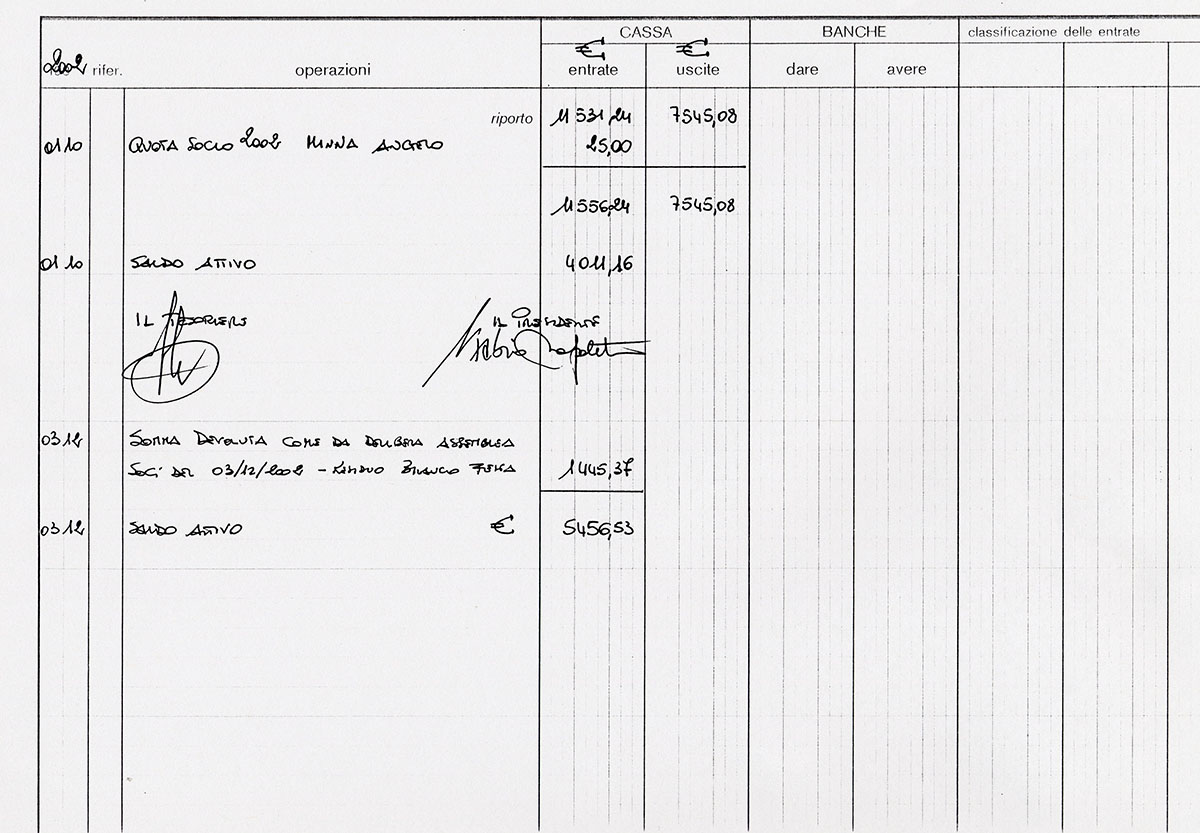 CASSA BANCHE classificazione delle entrate
€ €
2002 rifer. operazioni entrate uscite dare avere
riporto 11531,24 7545,08
01 10 QUOTA SOCIO 2002 MINNA ANGELO 25,00
11556,24 7545,08
01 10 SALDO ATTIVO 4011,16
IL TESORIERE IL PRESIDENTE
03 12 SOMMA DEVOLUTA COME DA DELIBERA ASSEMBLEA
SOCI DEL 03/12/2002 - RESIDUO BIANCO 1445,37
03 12 SALDO ATTIVO € 5456,53